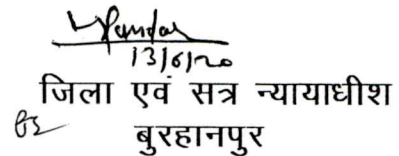 13/6/20
जिला एवं सत्र न्यायाधीश
बुरहानपुर